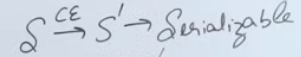 S CE→ S' → Serializable